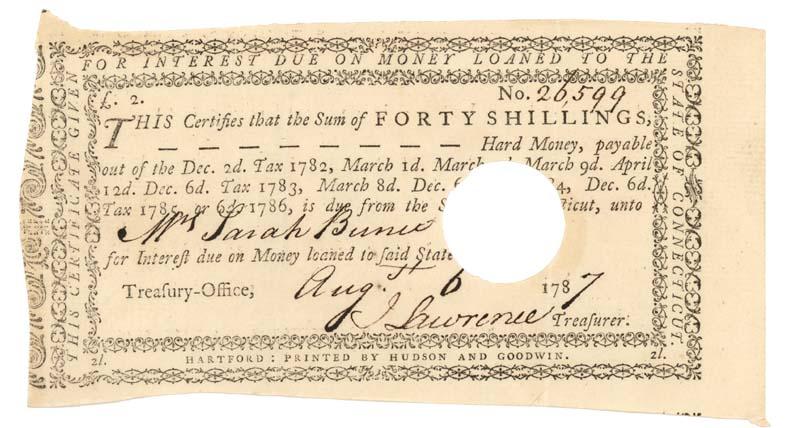 THIS CERTIFICATE GIVEN
FOR INTEREST DUE ON MONEY LOANED TO THE
STATE OF CONNECTICUT.
£. 2. No. 26,599
THIS Certifies that the Sum of FORTY SHILLINGS,
— — — — — — — — Hard Money, payable
out of the Dec. 2d. Tax 1782, March 1d. March March 9d. April
12d. Dec. 6d. Tax 1783, March 8d. Dec. 4, Dec. 6d.
Tax 1785, or 6d. 1786, is due from the S icut, unto
Mrs Sarah
for Intereſt due on Money loaned to ſaid State
Treasury-Office, Aug. 6 1787
J Lawrence Treaſurer.
2l. HARTFORD: PRINTED BY HUDSON AND GOODWIN. 2l.